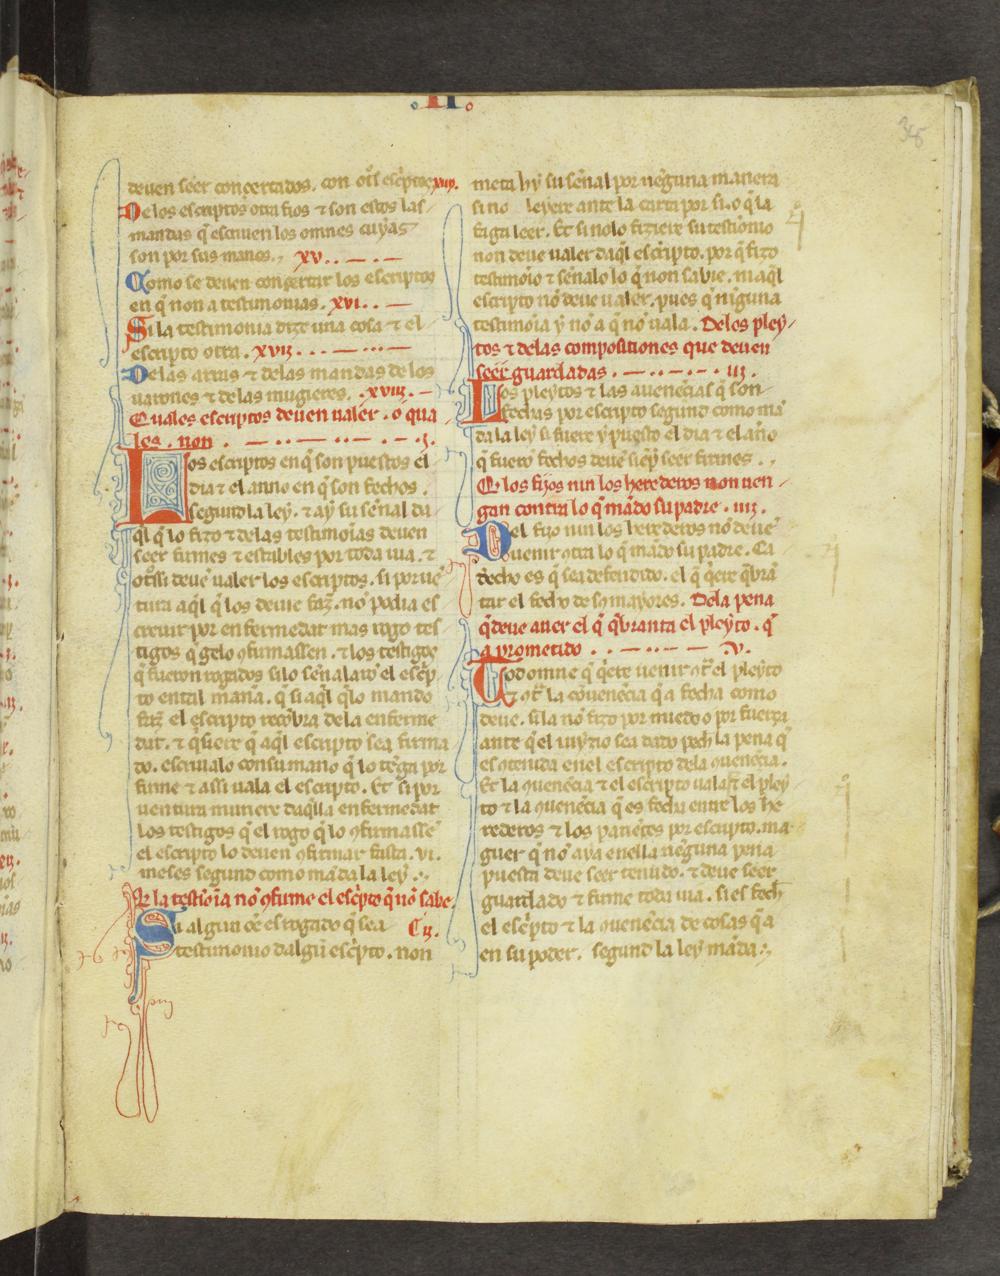 .II.
38
deuen seer concertados. con otͦs escͥptos xiiij.
De los escriptos otra fijos ⁊ son estos las
mandas q̄ escriuen los omnes cuyas
son por sus manos. xv.
Como se deuen concertar los escriptos
en q̄ non a testimonias. xvi.
Si la testimonia dize una cosa ⁊ el
escripto otra. xvij.
De las arras ⁊ de las mandas de los
uarones ⁊ de las mugieres. xviij.
Quales escriptos deuen ualer. o qua
les. non. j.
Los escriptos en q̄ son puestos el
dia ⁊ el anno en q̄ son fechos.
segund la ley. ⁊ ay su señal da
q̄l q̄ lo fizo ⁊ de las testimõias deuen
seer firmes ⁊ estables por toda uia. ⁊
otͦssi deuē ualer los escriptos. si por uē
tura aq̄l q̄ los deuie faz̃. no podia es
creuir por enfermedat mas rogo tes
tigos q̄ gelo ꝯfirmassen. ⁊ los testigos
q̄ fueron rogados si lo señalarō el escͥp
to en tal mañã. q̄ si aq̄l q̄ lo mando
faz̃ el escripto recōbra de la enferme
dat. ⁊ q̄siere q̄ aq̄l escripto sea firma
do. escriualo con su mano q̄ lo tēga por
firme ⁊ assi uala el escripto. Et si por
uentura muriere daq̄lla enfermedat
los testigos q̄ el rogo q̄ lo ꝯfirmassē
el escripto lo deuen ꝯfirmar fasta .vi.
meses segund como mãda la ley.
Q̄ la testimõia nō ꝯfirme el escͥpto q̄ nō sabe
Si algun oē es rogado q̄ sea ij.
testimonio dalgū escͥpto. non
meta hy su señal por nēguna manera
si no leyere ante la carta por si. o q̄ la
faga leer. Et si no lo fiziere su testiōnio
non deue ualer daq̄l escͥpto. por q̄ fizo
testimōio ⁊ señalo lo q̄ non sabie. ni aq̄l
escripto nō deue ualer. pues q̄ nīguna
testimõia y nō a q̄ nō uala. De los pley
tos ⁊ de las composiciones que deuen
seer guardadas. iij.
Los pleytos ⁊ las auenēcias q̄ son
fechas por escripto segund como mã
da la ley si fuere y puesto el dia ⁊ el año
q̄ fuerō fechos deuē siēp̃ seer firmes.
Q̄ los fijos nin los herederos non uen
gan contra lo q̄ mãdo su padre. iiij.
El fijo nin los herederos nō deuē
uenir ꝯtra lo q̄ mãdo su padre. Ca
d̃echo es q̄ sea defendido. el q̄ q̄ere q̄brã
tar el fecho de sꝯ mayores. De la pena
q̄ deue auer el q̄ q̄branta el pleyto. q̄
a prometido. v.
Tod omne q̄ q̄ere uenir ꝯtͣ el pleyto
⁊ ꝯtͣ la cōuenēcia q̄ a fecha como
deue. si la nō fizo por miedo o por fuerça
ante q̄ el iuyzio sea dado pech la pena q̄
es ꝯtenida en el escripto de la ꝯuenēcia.
Et la ꝯuenēcia ⁊ el escripto uala. ⁊ el pley
to ⁊ la ꝯuenēcia q̄ es fecha entre los he
rederos ⁊ los pariētes por escripto. ma
guer q̄ nō aya en ella nēguna pena
puesta deue seer tenudo. ⁊ deue seer
guardado ⁊ firme toda uia. si es fech
el escͥpto ⁊ la ꝯuenēcia de cosas q̄ a
en su poder. segund la ley mãda.